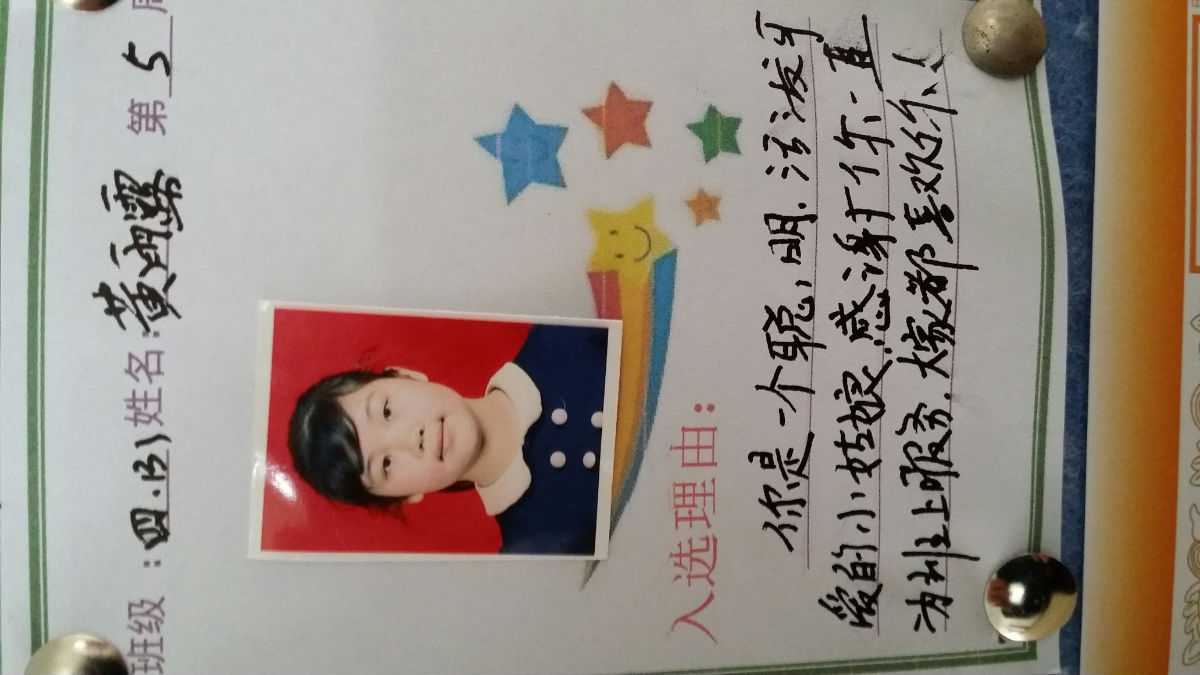 班级：四.(3) 姓名：黄雨露 第 5 周
入选理由：
你是一个聪明.活泼可
爱的小姑娘.感谢你一直
为班上服务.大家都喜欢你！